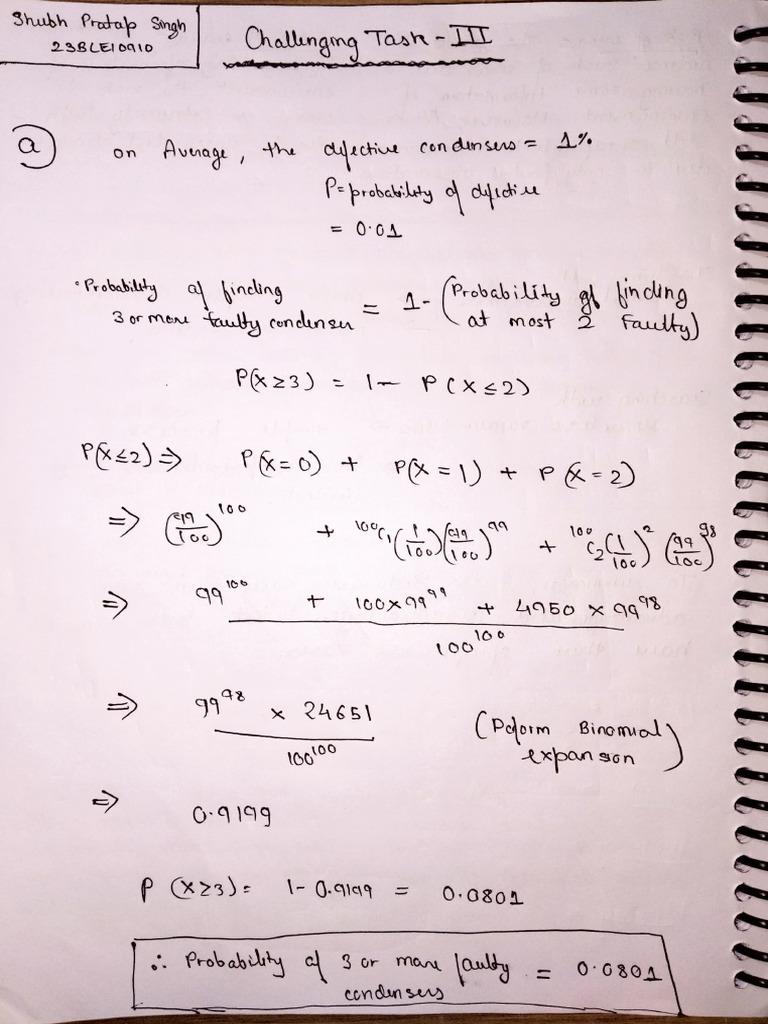 Shubh Pratap Singh
23BCE10910
Challenging Task - III
a
on Average, the defective condensers = 1%
P = probability of defective
= 0.01
• Probability of finding 3 or more faulty condenser = 1 - (Probability of finding at most 2 Faulty)
P(X≥3) = 1 - P(X≤2)
P(X≤2) ⇒ P(X=0) + P(X=1) + P(X=2)
⇒ (99/100)^100 + ^100C₁(1/100)(99/100)^99 + ^100C₂(1/100)^2 (99/100)^98
⇒ 99^100 + 100×99^99 + 4950 × 99^98 / 100^100
⇒ 99^98 × 24651 / 100^100 (Peform Binomial expanson)
⇒ 0.9199
P(X≥3) = 1 - 0.9199 = 0.0801
∴ Probability of 3 or more faulty condensers = 0.0801